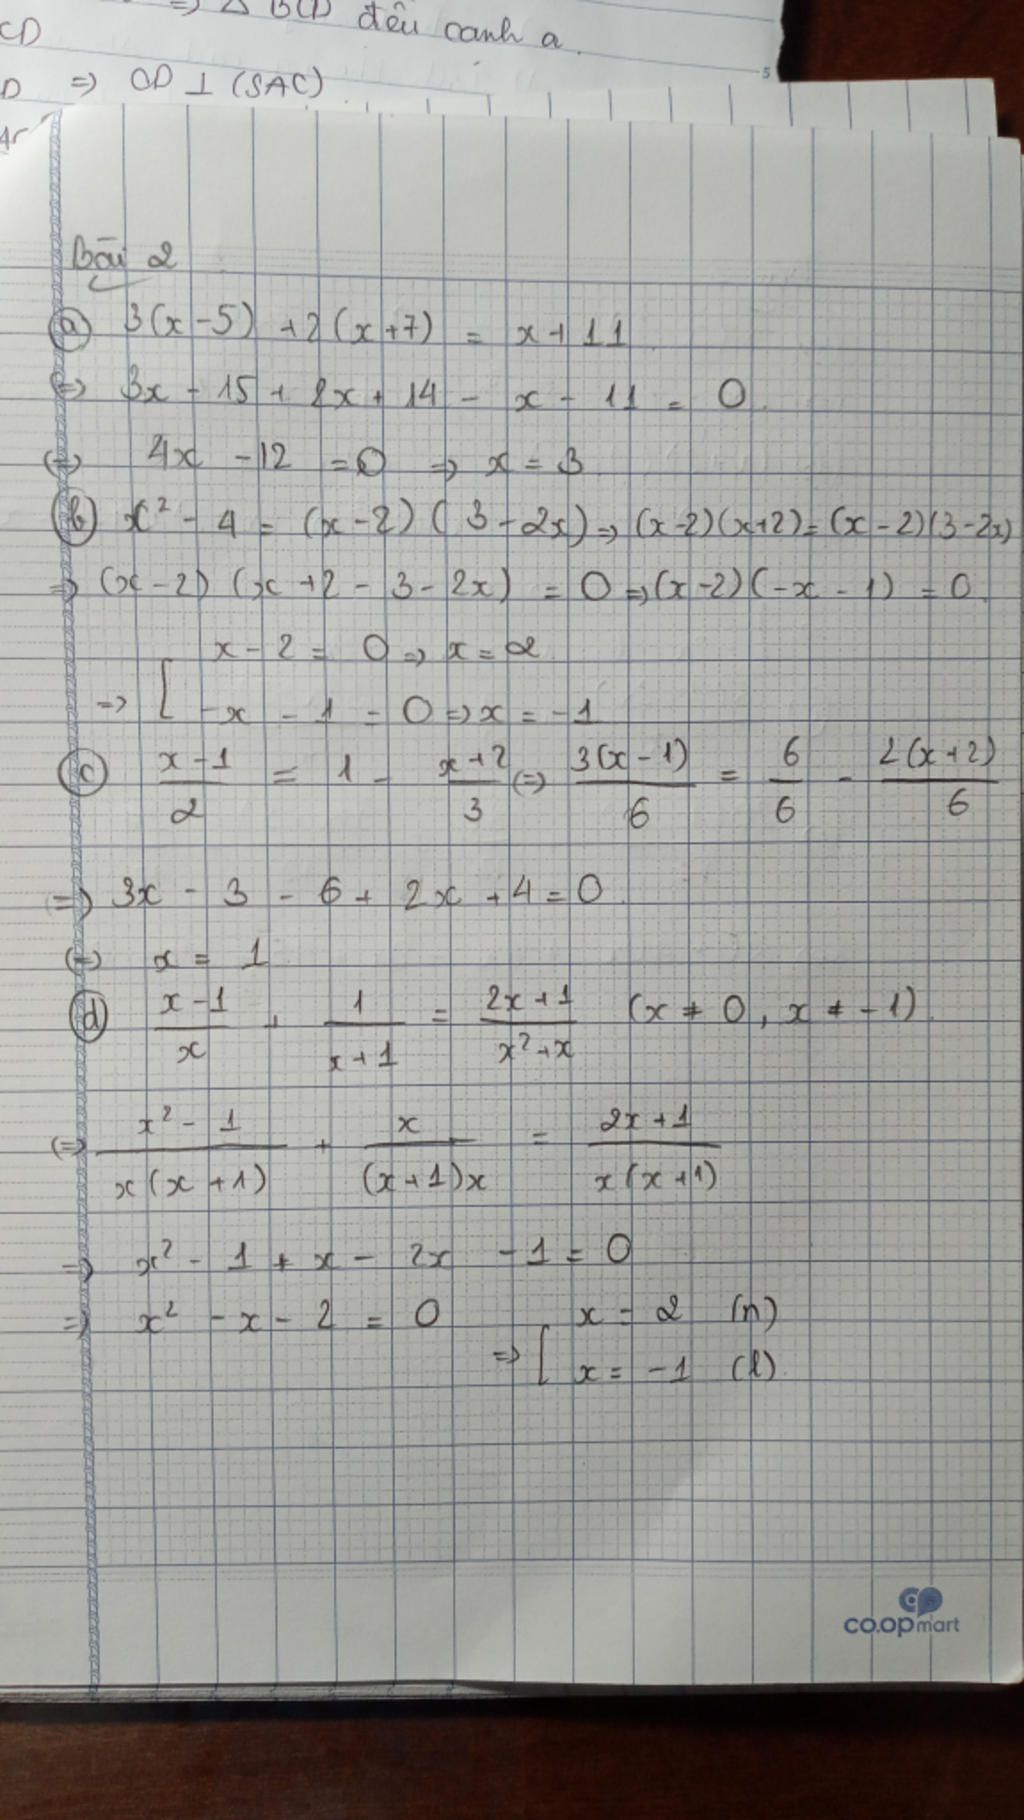 => △ BCD đều cạnh a.
CD
D => CD ⊥ (SAC)
5
Bài 2
a) 3(x-5) + 2(x+7) = x + 11
<=> 3x - 15 + 2x + 14 - x - 11 = 0
<=> 4x - 12 = 0 => x = 3
b) x² - 4 = (x-2)(3-2x) => (x-2)(x+2) = (x-2)(3-2x)
=> (x-2)(x+2-3-2x) = 0 => (x-2)(-x-1) = 0
x - 2 = 0 => x = 2
=> [ -x - 1 = 0 => x = -1
c) (x-1)/2 = 1 - (x+2)/3 <=> 3(x-1)/6 = 6/6 - 2(x+2)/6
=> 3x - 3 - 6 + 2x + 4 = 0
<=> x = 1
d) (x-1)/x + 1/(x+1) = (2x+1)/(x²+x) (x ≠ 0, x ≠ -1)
<=> (x²-1)/(x(x+1)) + x/((x+1)x) = (2x+1)/(x(x+1))
=> x² - 1 + x - 2x - 1 = 0
=> x² - x - 2 = 0
x = 2 (n)
=> [ x = -1 (l)
co.opmart